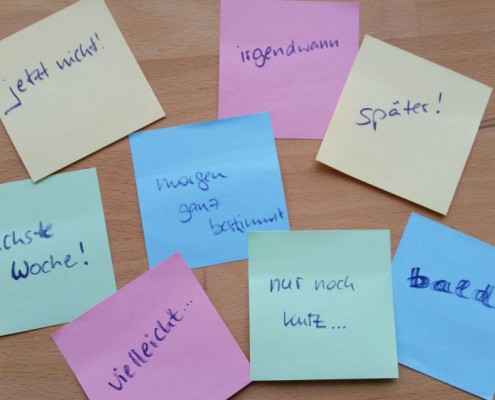 jetzt nicht!
irgendwann
später!
morgen
ganz
bestimmt
chste
Woche!
vielleicht...
nur noch
kurz...
bald